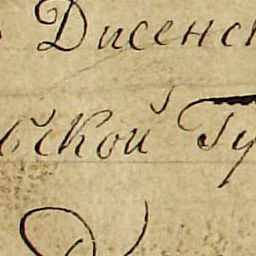 Дисенск
ской Гу